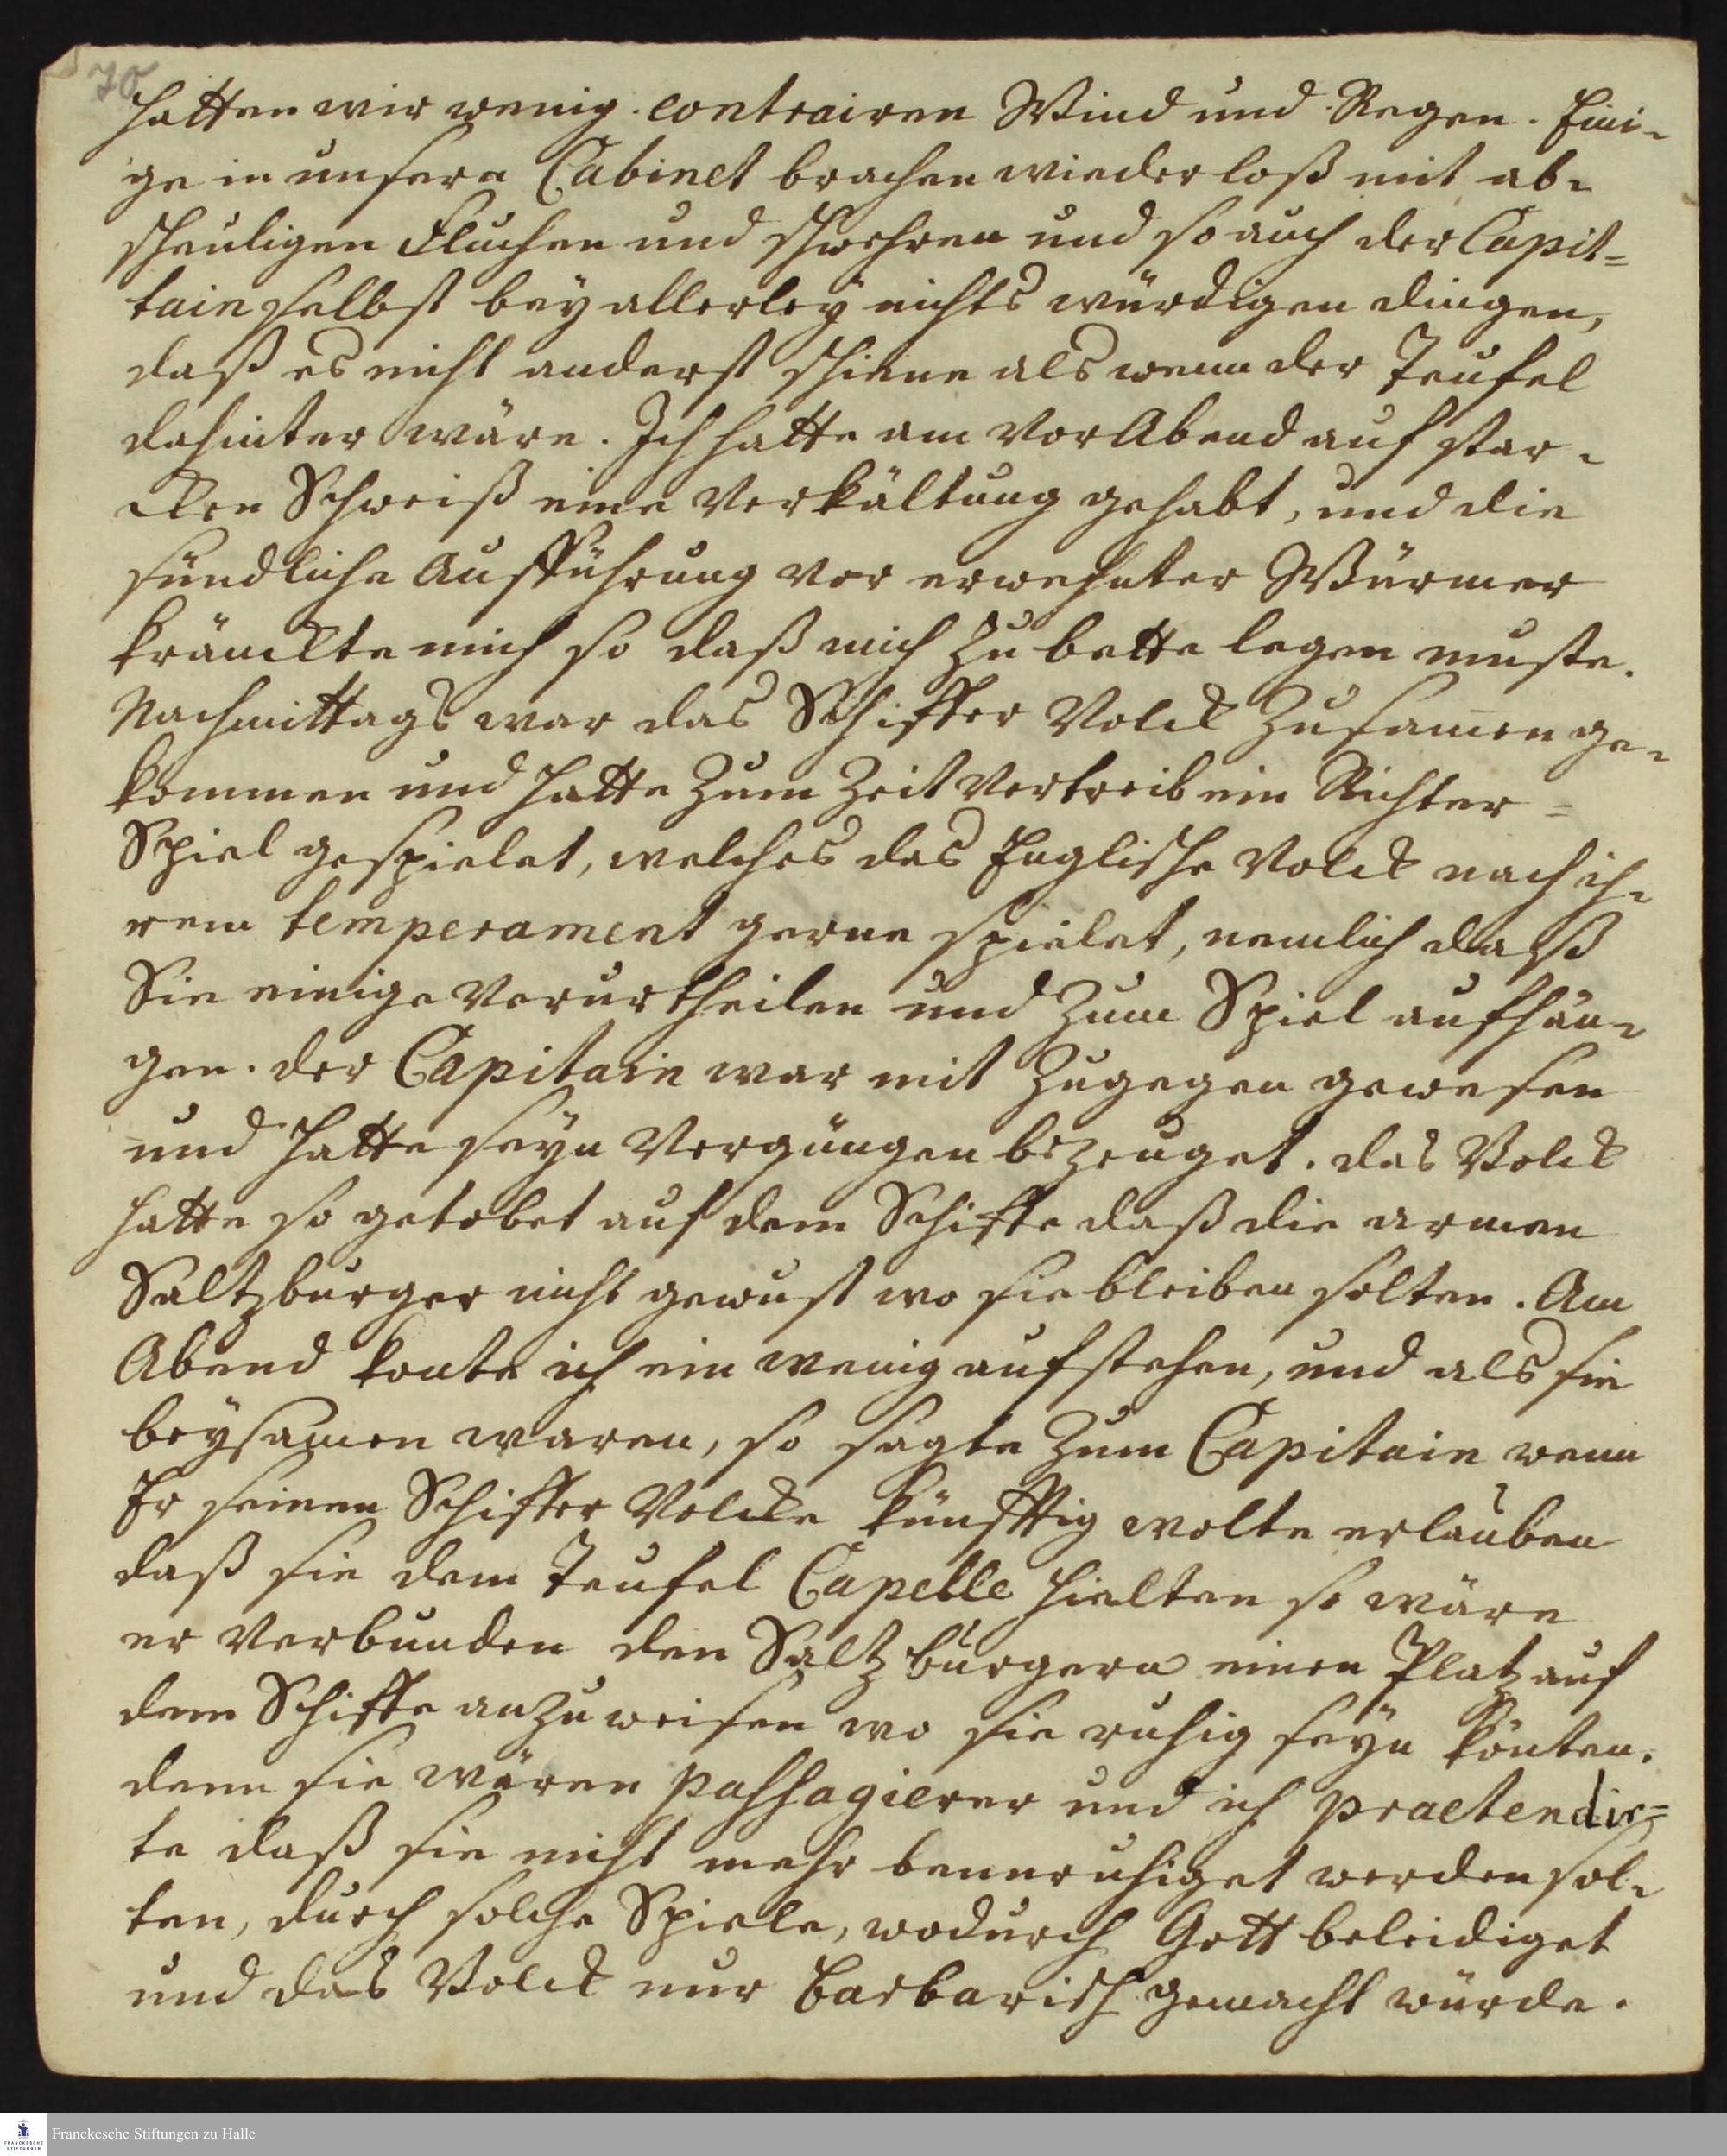 70
hatten wir wenig contrairen Wind und Regen. Eini-
ge in unsern Cabinet brachen wieder loß mit ab-
scheuligen Fluchen und schwehren und so auch der Capit=
tain selbst bey allerley nichts würdigen dingen,
daß es nicht anderst schiene als wenn der Teufel
dahinter wäre. Ich hatte am Vor Abend auf star-
cken Schweiß eine Verkältung gehabt, und die
sündliche Aufführung vor erwehnter Würmer
kränckte mich so daß mich zu bette legen muste.
Nachmittags war das Schiffer Volck zusam̄en ge-
kommen und hatte zum Zeit Vertreib ein Richter=
Spiel gespielet, welches das Englische Volck nach ih-
rem temperament gerne spielet, nemlich daß
Sie einige Verurtheilen und zum Spiel aufhän-
gen. der Capitain war mit zugegen gewesen
und hatte seyn Vergnügen bezeuget. das Volck
hatte so getobet auf dem Schiffe daß die armen
Saltzburger nicht gewust wo sie bleiben solten. Am
Abend konte ich ein wenig aufstehen, und als sie
beysam̄en waren, so sagte zum Capitain wenn
Er seinen Schiffer Volcke künfftig wolte erlauben
daß sie dem Teufel Capelle hielten so wäre
er Verbunden den Saltzburgern einen Platz auf
dem Schiffe anzuweisen wo sie ruhig seyn könten.
denn sie wären passagierer und ich praetendir=
te daß sie nicht mehr beunruhiget werden sol-
ten, durch solche Spiele, wodurch Gott beleidiget
und das Volck nur barbarisch gemacht würde.
Franckesche Stiftungen zu Halle
FRANCKESCHE
STIFTUNGEN